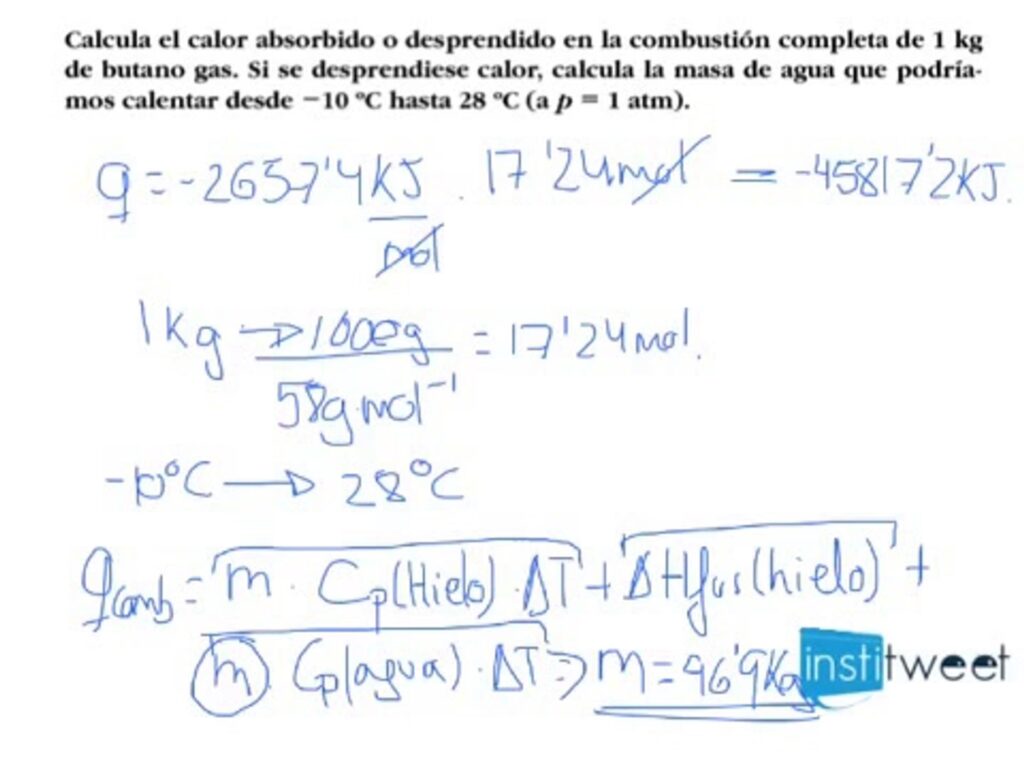 Calcula el calor absorbido o desprendido en la combustión completa de 1 kg
de butano gas. Si se desprendiese calor, calcula la masa de agua que podría-
mos calentar desde −10 ºC hasta 28 ºC (a p = 1 atm).
q = -2657'4 KJ/mol · 17'24 mol = -45817'2 KJ.
1 Kg → 1000g / 58g·mol⁻¹ = 17'24 mol.
-10°C → 28°C
qcomb = m · Cp(Hielo) · ΔT + ΔHfus(hielo) +
m Cp(agua) · ΔT ⇒ m = 96'9 Kg
institweet